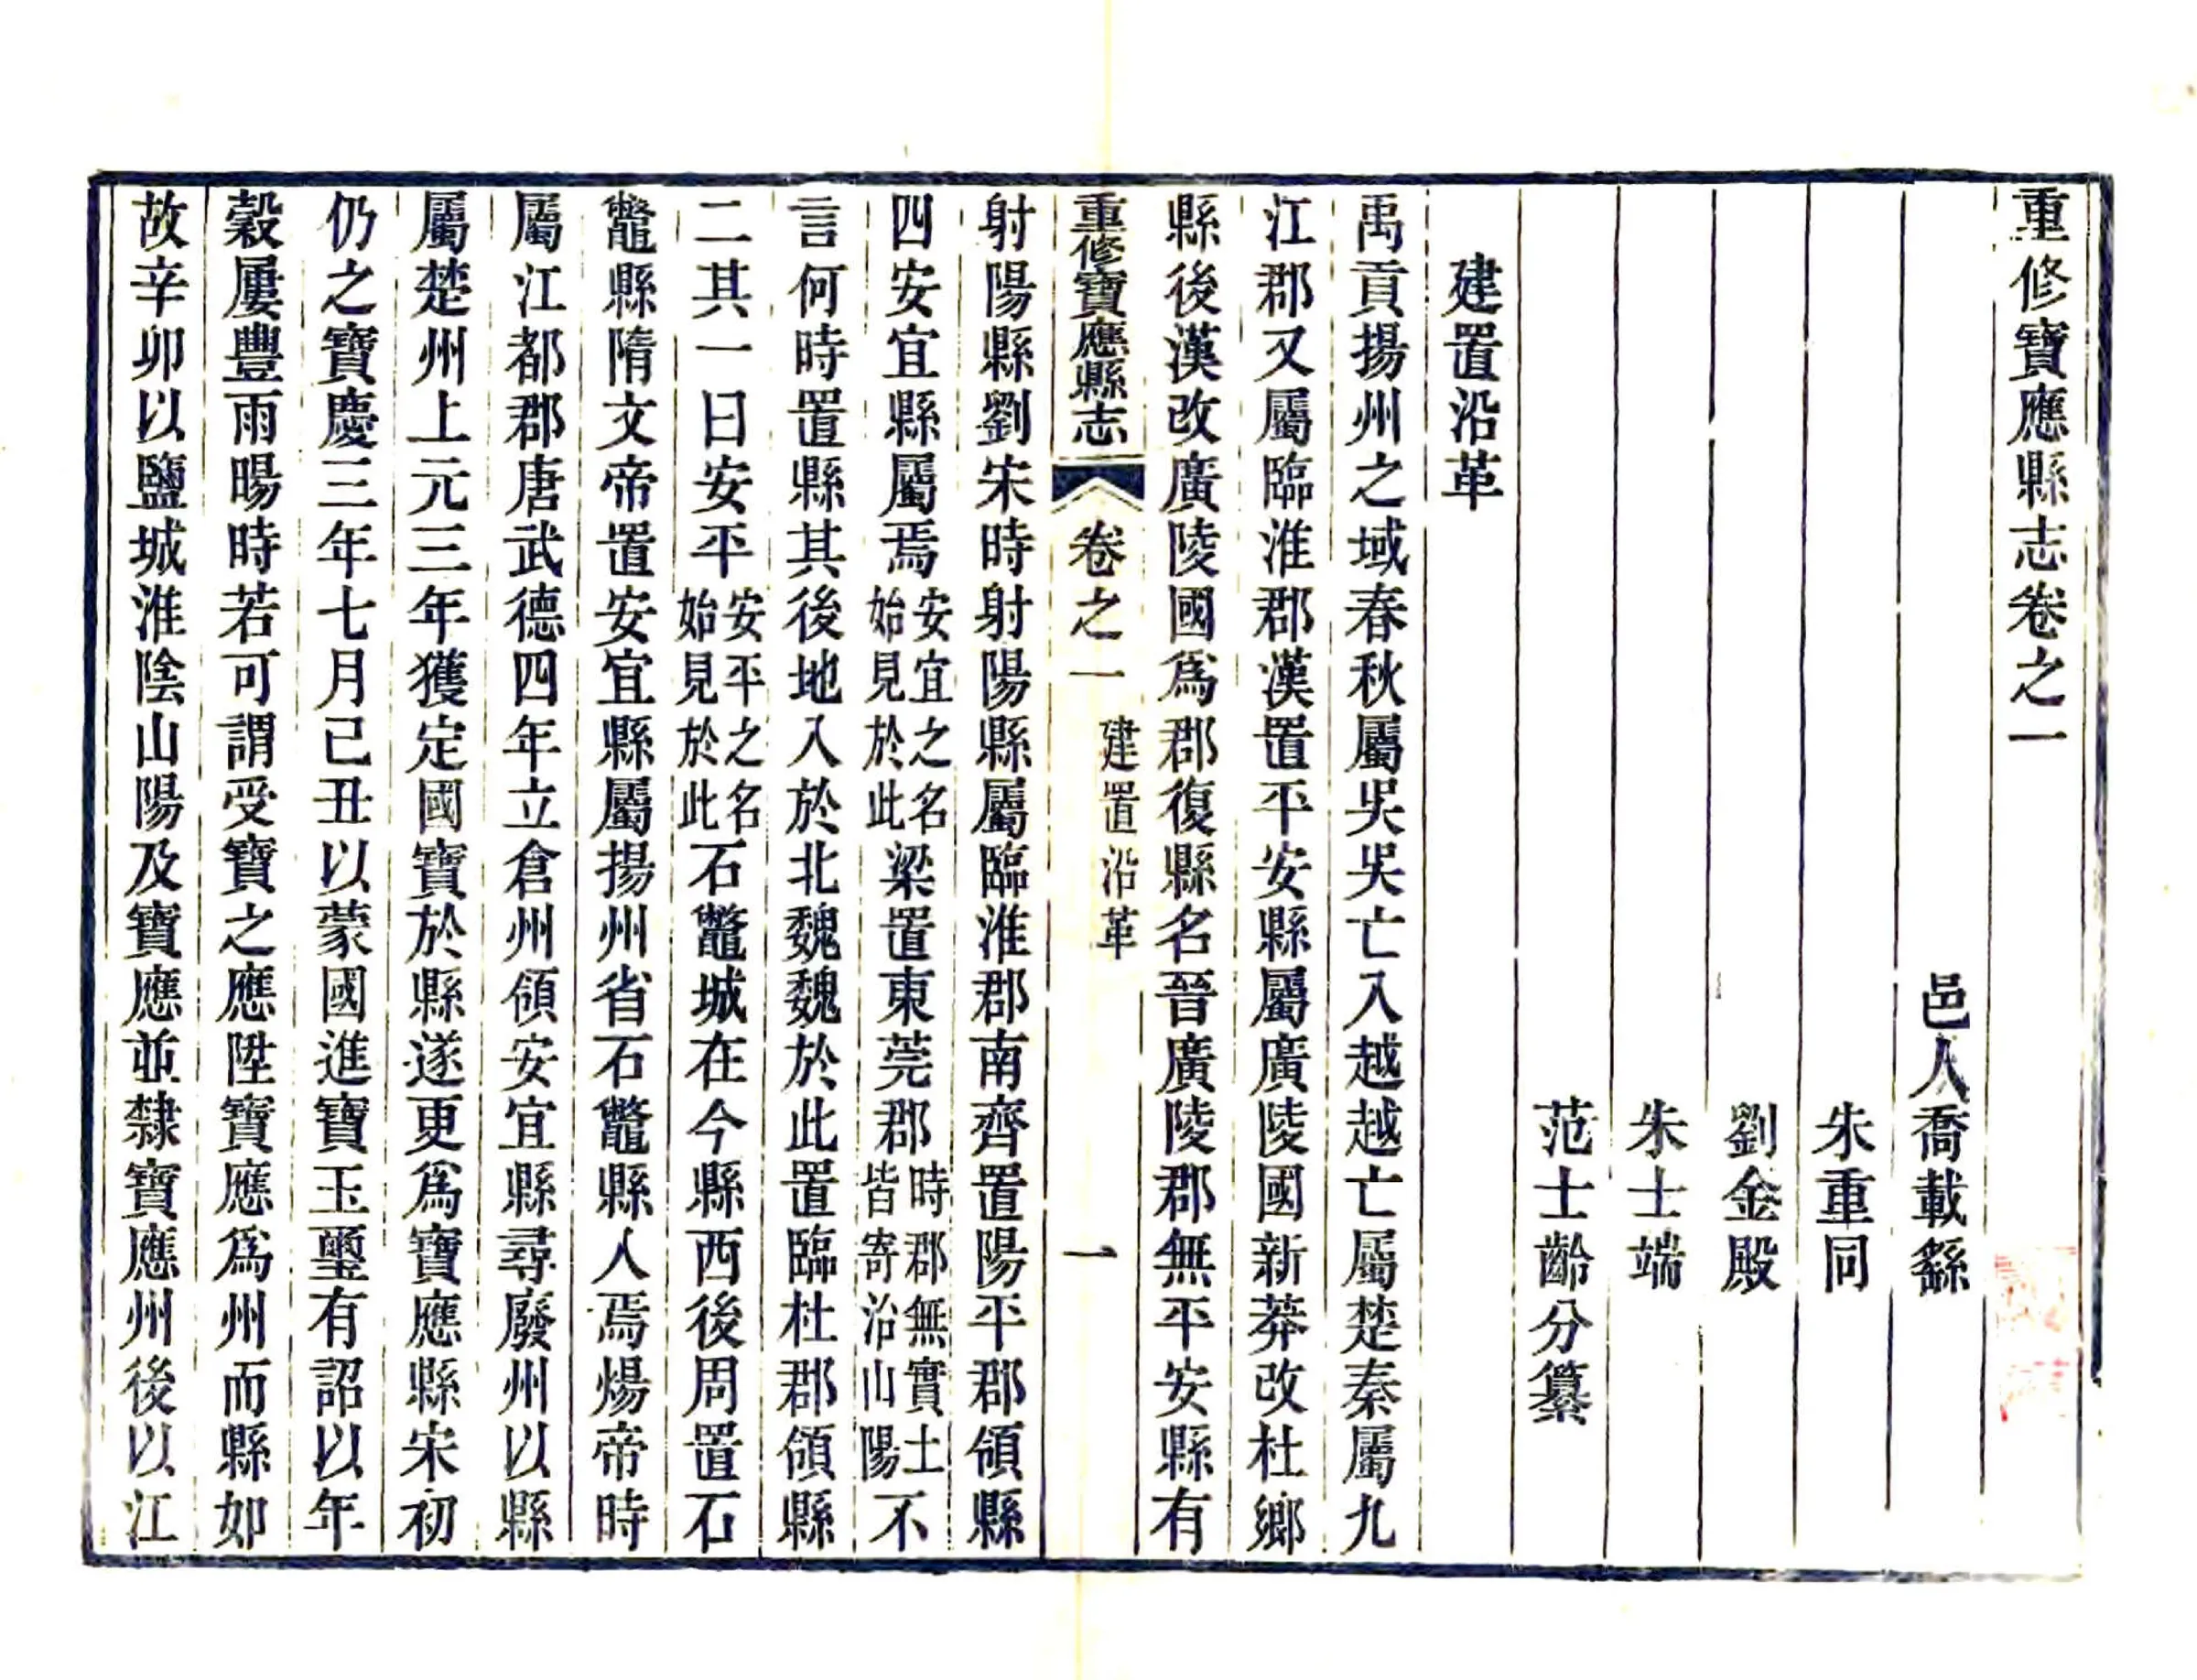 重修寶應縣志卷之一
邑人喬載繇
朱重同
劉金殿
朱士端
范士齡分纂
建置沿革
禹貢揚州之域春秋屬吳吳亡入越越亡屬楚秦屬九
江郡又屬臨淮郡漢置平安縣屬廣陵國新莽改杜鄉
縣後漢改廣陵國爲郡復縣名晉廣陵郡無平安縣有
重修寶應縣志 卷之一 建置沿革 一
射陽縣劉宋時射陽縣屬臨淮郡南齊置陽平郡領縣
四安宜縣屬焉安宜之名始見於此梁置東莞郡時郡無實土皆寄治山陽不
言何時置縣其後地入於北魏魏於此置臨杜郡領縣
二其一曰安平安平之名始見於此石鼈城在今縣西後周置石
鼈縣隋文帝置安宜縣屬揚州省石鼈縣入焉煬帝時
屬江都郡唐武德四年立倉州領安宜縣尋廢州以縣
屬楚州上元三年獲定國寶於縣遂更爲寶應縣宋初
仍之寶慶三年七月己丑以蒙國進寶玉璽有詔以年
穀屢豐雨暘時若可謂受寶之應陞寶應爲州而縣如
故辛卯以鹽城淮陰山陽及寶應並隸寶應州後以江